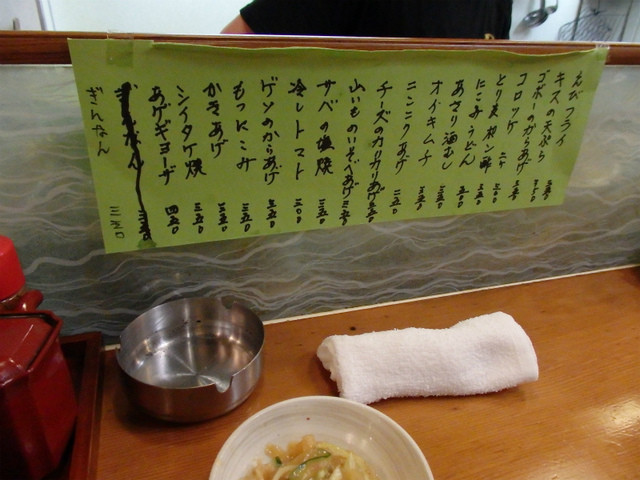 えびフライ
キスの天ぷら
ゴボーのからあげ
コロッケ
とり天ポン酢
にこみうどん
あさり酒むし
オイキムチ
ニンニクあげ 二五〇
チーズのカリカリあげ 三五〇
山いものいそべあげ 三五〇
サバの塩焼 三五〇
冷しトマト 三〇〇
ゲソのからあげ 三五〇
もつにこみ 三五〇
かきあげ 三五〇
シイタケ焼 三五〇
あげギョーザ 四五〇
ぎんなん 三五〇